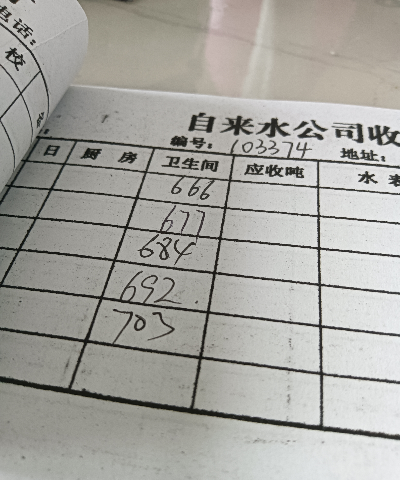 电话:
校
自来水公司收
编号: 103374 地址:
日 厨房 卫生间 应收吨 水表
666
677
684
692.
703